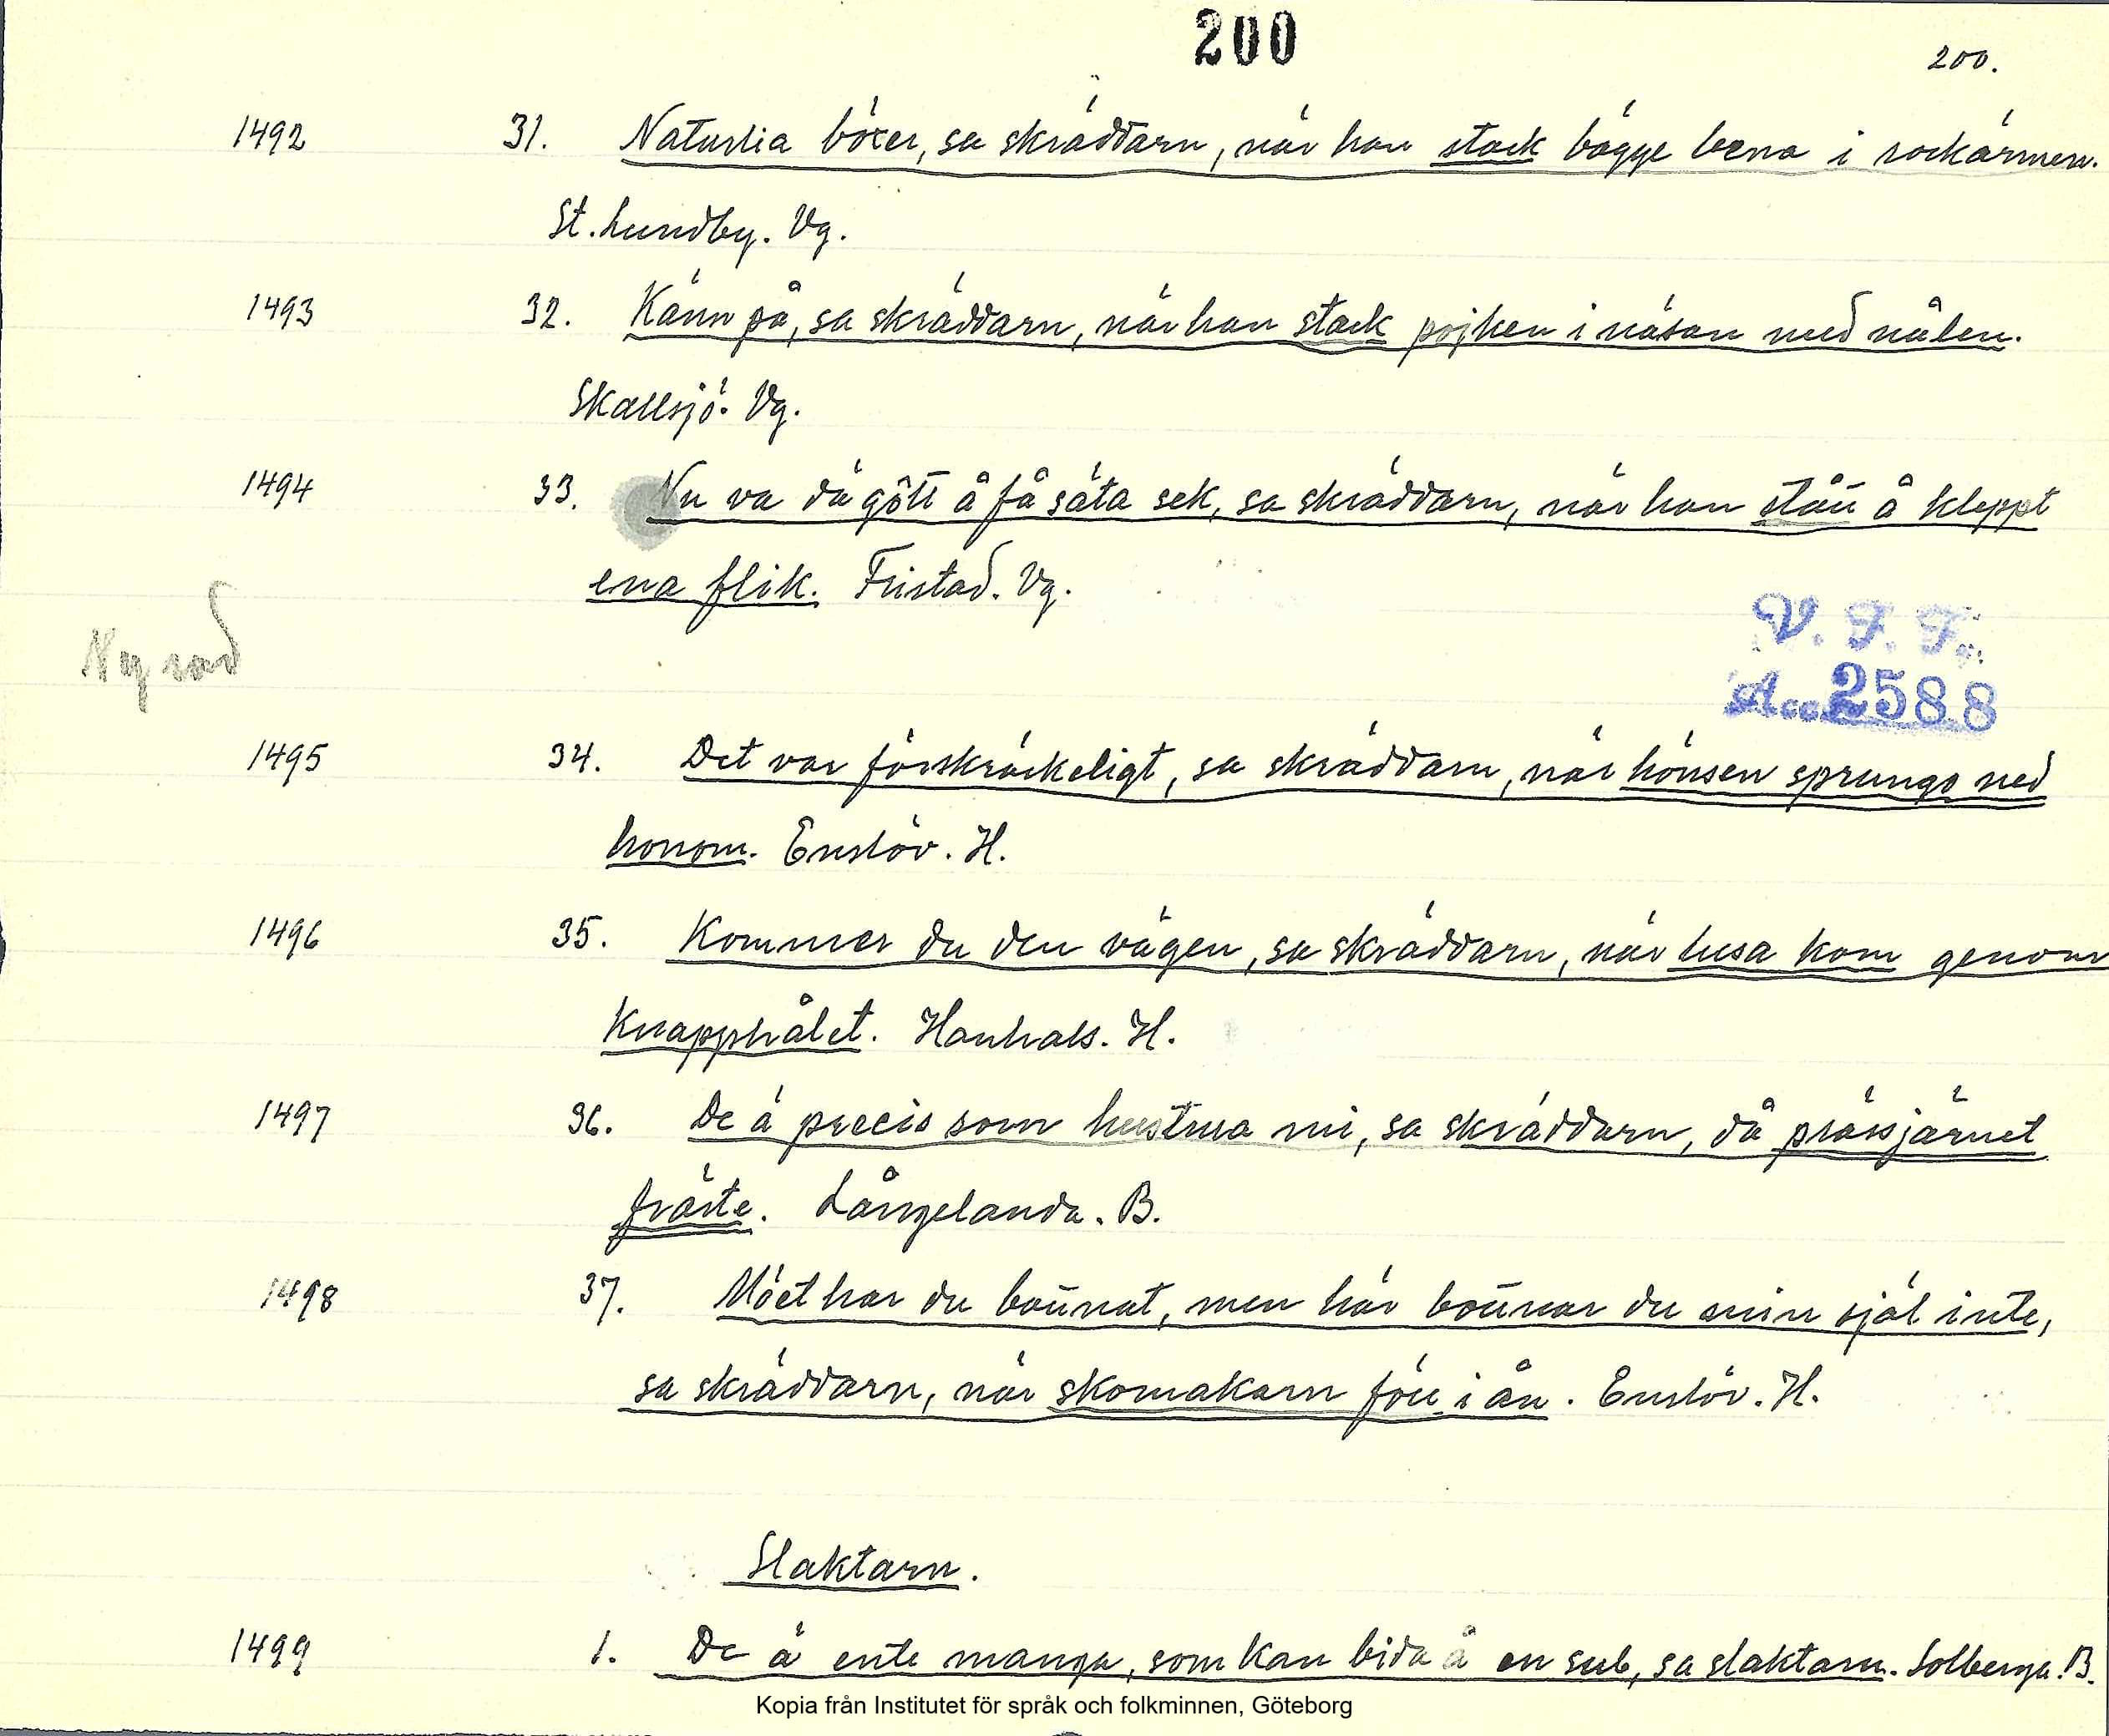 200
200.
1492 31. Naturlia böxer, sa skräddarn, när han stack bägge bena i rockärmen.
St. Lundby. Vg.
1493 32. Känn på, sa skräddarn, när han stack pojken i näsan med nålen.
Skallsjö. Vg.
1494 33. Nu va dä gôtt å få säta sek, sa skräddarn, när han å kleppt
ena flik. Fristad. Vg.
Ny rad
V. F. F.
Acc. 2588
1495 34. Det var förskräckeligt, sa skräddarn, när hönsen sprungo ned
honom. Enslöv. H.
1496 35. Kommer du den vägen, sa skräddarn, när lusa kom genom
knapphålet. Hanhals. H.
1497 36. De ä precis som hustrua mi, sa skräddarn, då prässjärnet
fräste. Långelanda. B.
1498 37. har du men här du min själ inte,
sa skräddarn, när skomakarn föll i ån. Enslöv. H.
Slaktarn.
1499 1. De ä ente manga, som kan bida å en sub, sa slaktarn. Solberga. B.
Kopia från Institutet för språk och folkminnen, Göteborg